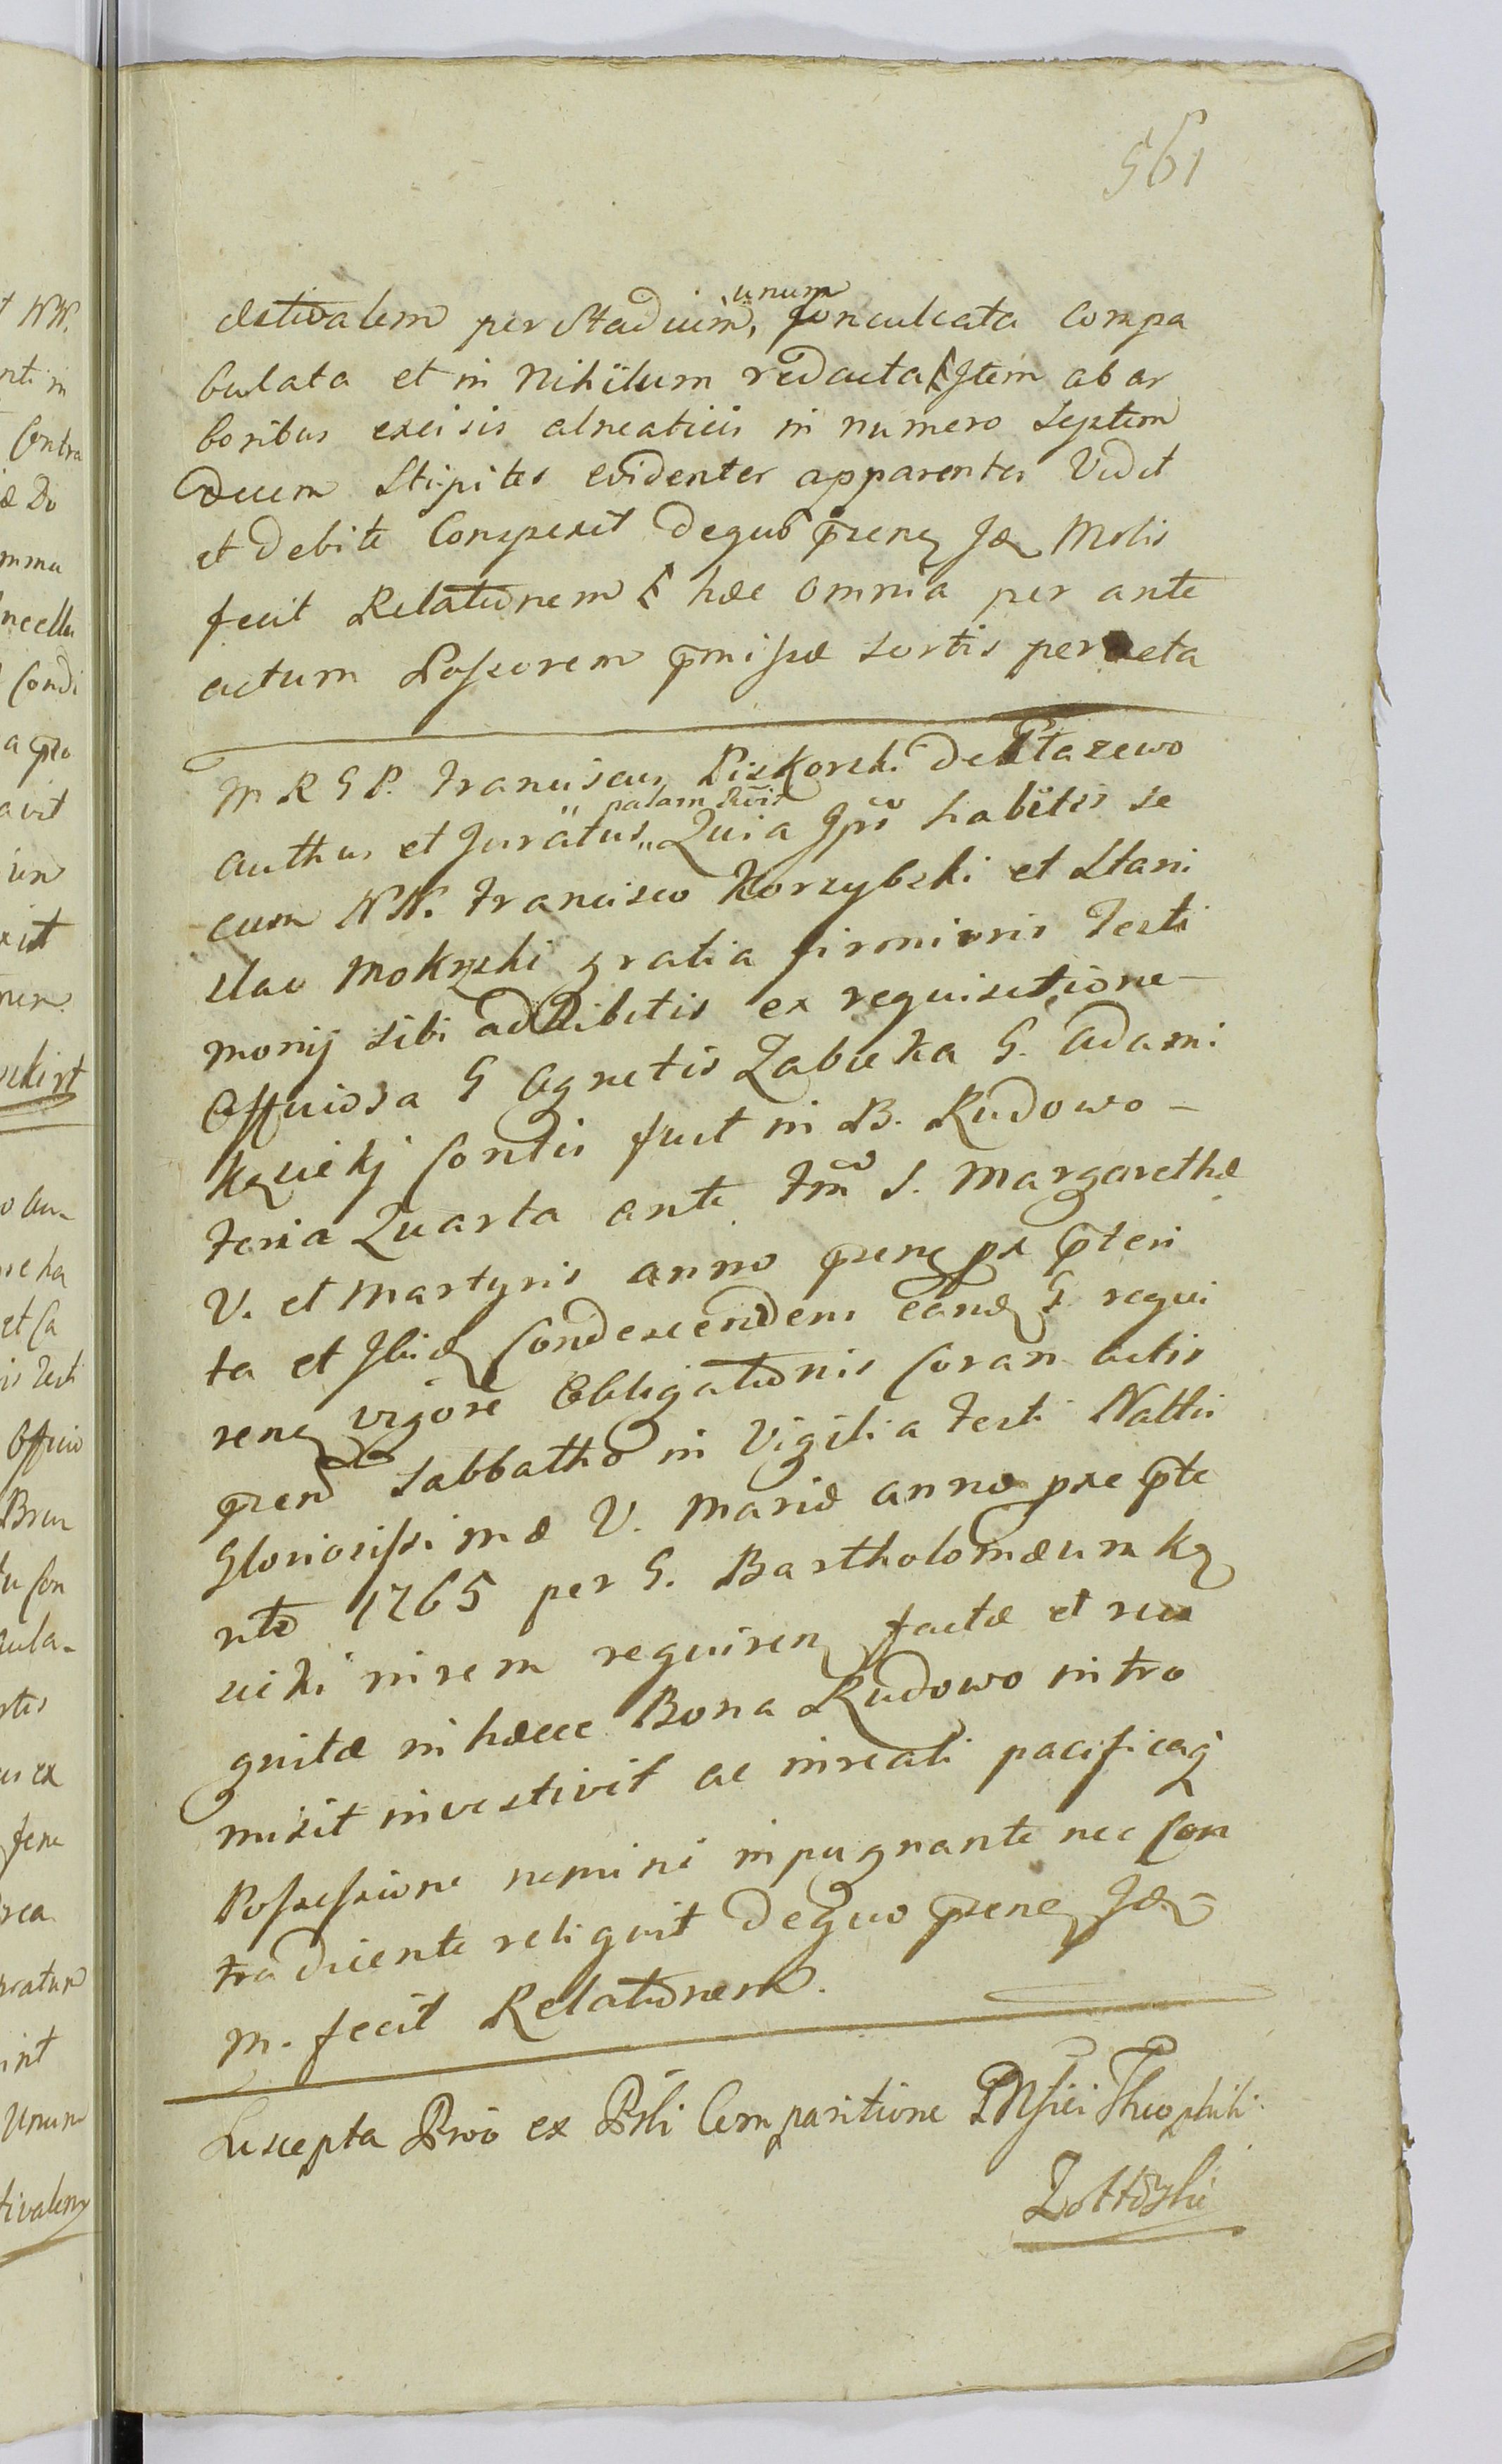 561
æstivalem per Stadium, unum Conculcata Compa
bulata et in Nihilum redacta Item ab ar
boribus excisis alneaticis in numero Septem
decem Stipites evidenter apparentes Vidit
et debite Conspexit dequo pñsens Jdz Mstis
fecit Relationem hæc omnia per ante
actum Possorem pmissæ sortis peracta
M R G P. Franciscus Piskorski de Ptazewo
authus et Juratus palam Quia Jpse habitis se
cum NN. Francisco Korzybski et Stani
slao Mokrzki gratia firmioris Testi
monij sibi addibitis ex requisitione
Officiosa G Agnetis Zabicka G. Adami
Kęsickj Contis fuit in B. Rudowo
feria Quarta ante Fm̃ S. Margarethæ
V. et Martyris anno præpteri
ta et Jbidz Condescendens eand G requi
renz vigore Obligationis Coram actis
pñsend Sabbatho in Vigilia Festi Nattis
Gloriosissimæ V. Mariæ anno præpte
rito 1765 per G. Bartholomæum Kę
sicki inrem requirenz factæ et reco
gnitæ in hæcce Bona Rudowo intro
misit investivit ac inreali pacificaq
Possessione nemine inpugnante nec Con
tradicente reliquit dequo pñsenz Jdz
M. fecit Relationem.
Suscepta ex Comparitione Theophili